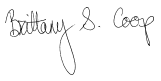 Brittany S. Coop